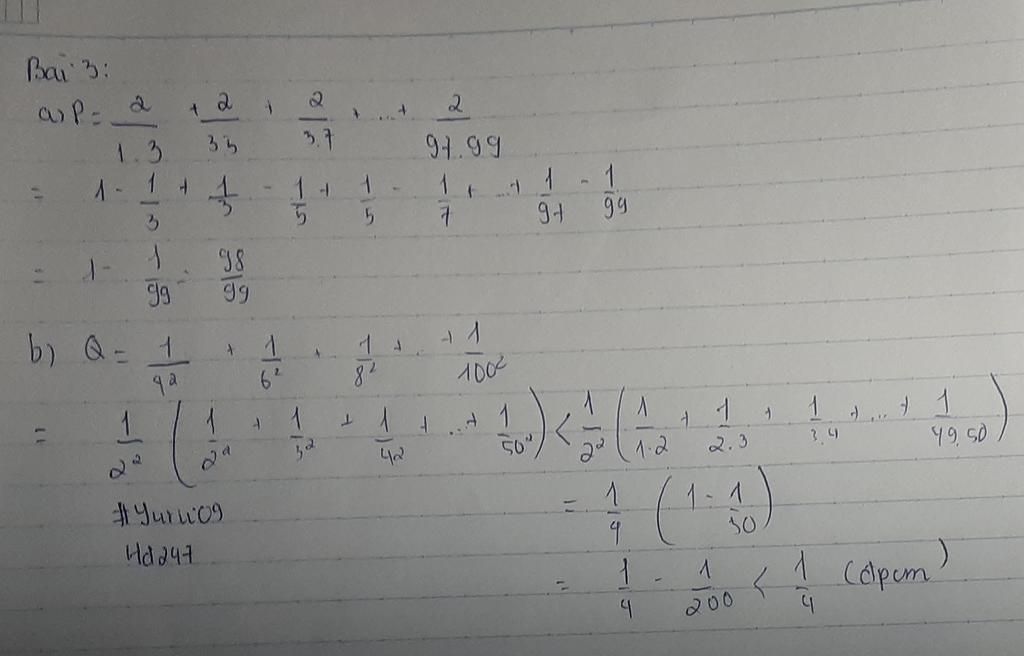 Bài 3:
a) P = 2/1.3 + 2/3.5 + 2/3.7 + ... + 2/97.99
= 1 - 1/3 + 1/3 - 1/5 + 1/5 - 1/7 + ... + 1/97 - 1/99
= 1 - 1/99 = 98/99
b) Q = 1/4² + 1/6² + 1/8² + ... + 1/100²
= 1/2² (1/2² + 1/3² + 1/4² + ... + 1/50²) < 1/2² (1/1.2 + 1/2.3 + 1/3.4 + ... + 1/49.50)
= 1/4 (1 - 1/50)
#Yurii09
Hd247
= 1/4 - 1/200 < 1/4 (đpcm)